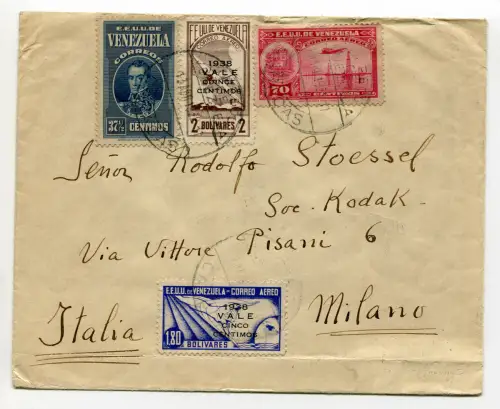 E.E.U.U. DE VENEZUELA
CORREOS
37½ CENTIMOS
EE.UU. DE VENEZUELA
CORREO AEREO
1938
VALE
QUINCE
CENTIMOS
2 BOLIVARES 2
E.E.U.U. DE VENEZUELA
CORREO AEREO
70 CENTIMOS
CAS
Señor Rodolfo Stoessel
Soc. Kodak
Via Vittore Pisani 6
Milano
Italia
E.E.U.U. DE VENEZUELA - CORREO AEREO
1938
VALE
CINCO
CENTIMOS
1,80 BOLIVARES